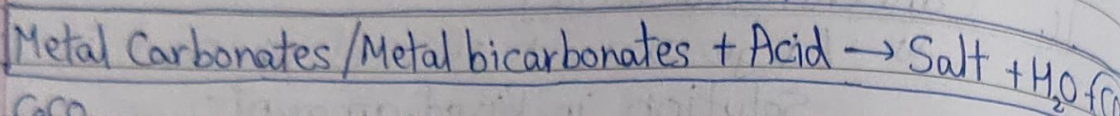 Metal Carbonates/Metal bicarbonates + Acid → Salt + H₂O +